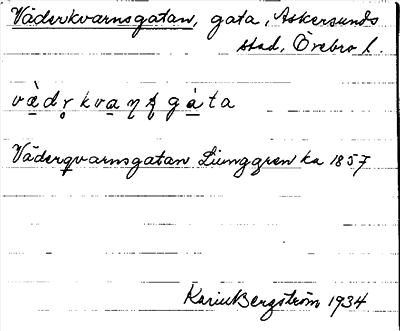 Väderkvarnsgatan, gata, Askersunds
stad, Örebro l.
Väderqvarnsgatan Ljunggren ka 1857
Karin Bergström 1934